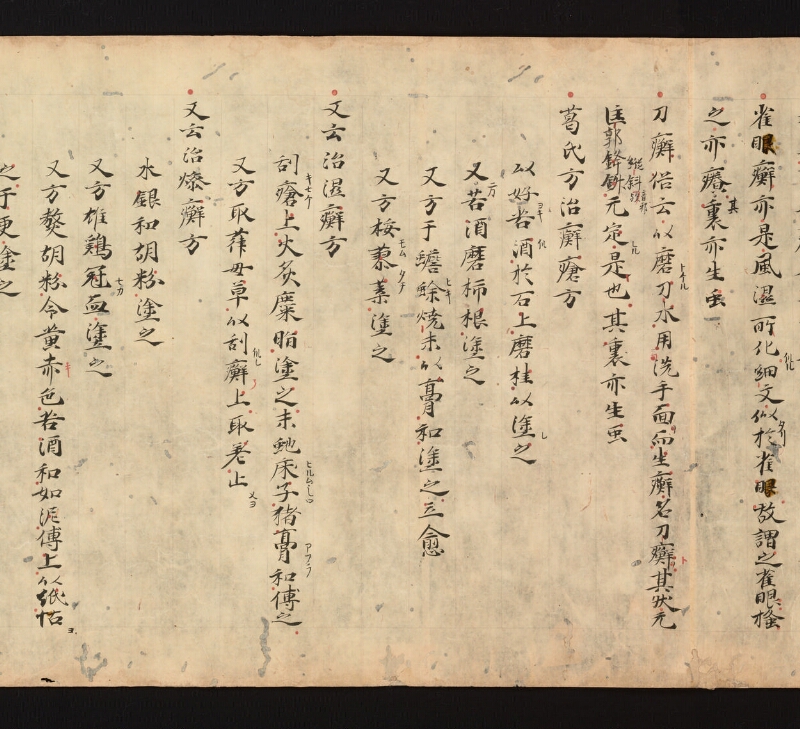 雀眼癬亦是風濕所化細文似於雀眼故謂之雀眼搔
之亦癢裏亦生虫
刀癬俗云以磨刀水用洗手面而生癬名刀癬其狀无
匡郭縱斜无定是也其裏亦生虫
葛氏方治癬瘡方
以好苦酒於石上磨桂以塗之
又苦酒磨柿根塗之
又方干蟾蜍燒末以膏和塗之立愈
又方桉蓼葉塗之
又云治濕癬方
刮瘡上火炙糜脂塗之末虵床子猪膏和傅之
又方取萆毋草以刮癬上取差止
又云治燥癬方
水銀和胡粉塗之
又方雄鶏冠血塗之
又方熬胡粉令黄赤色苦酒和如泥傅上以紙怗
之干更塗之